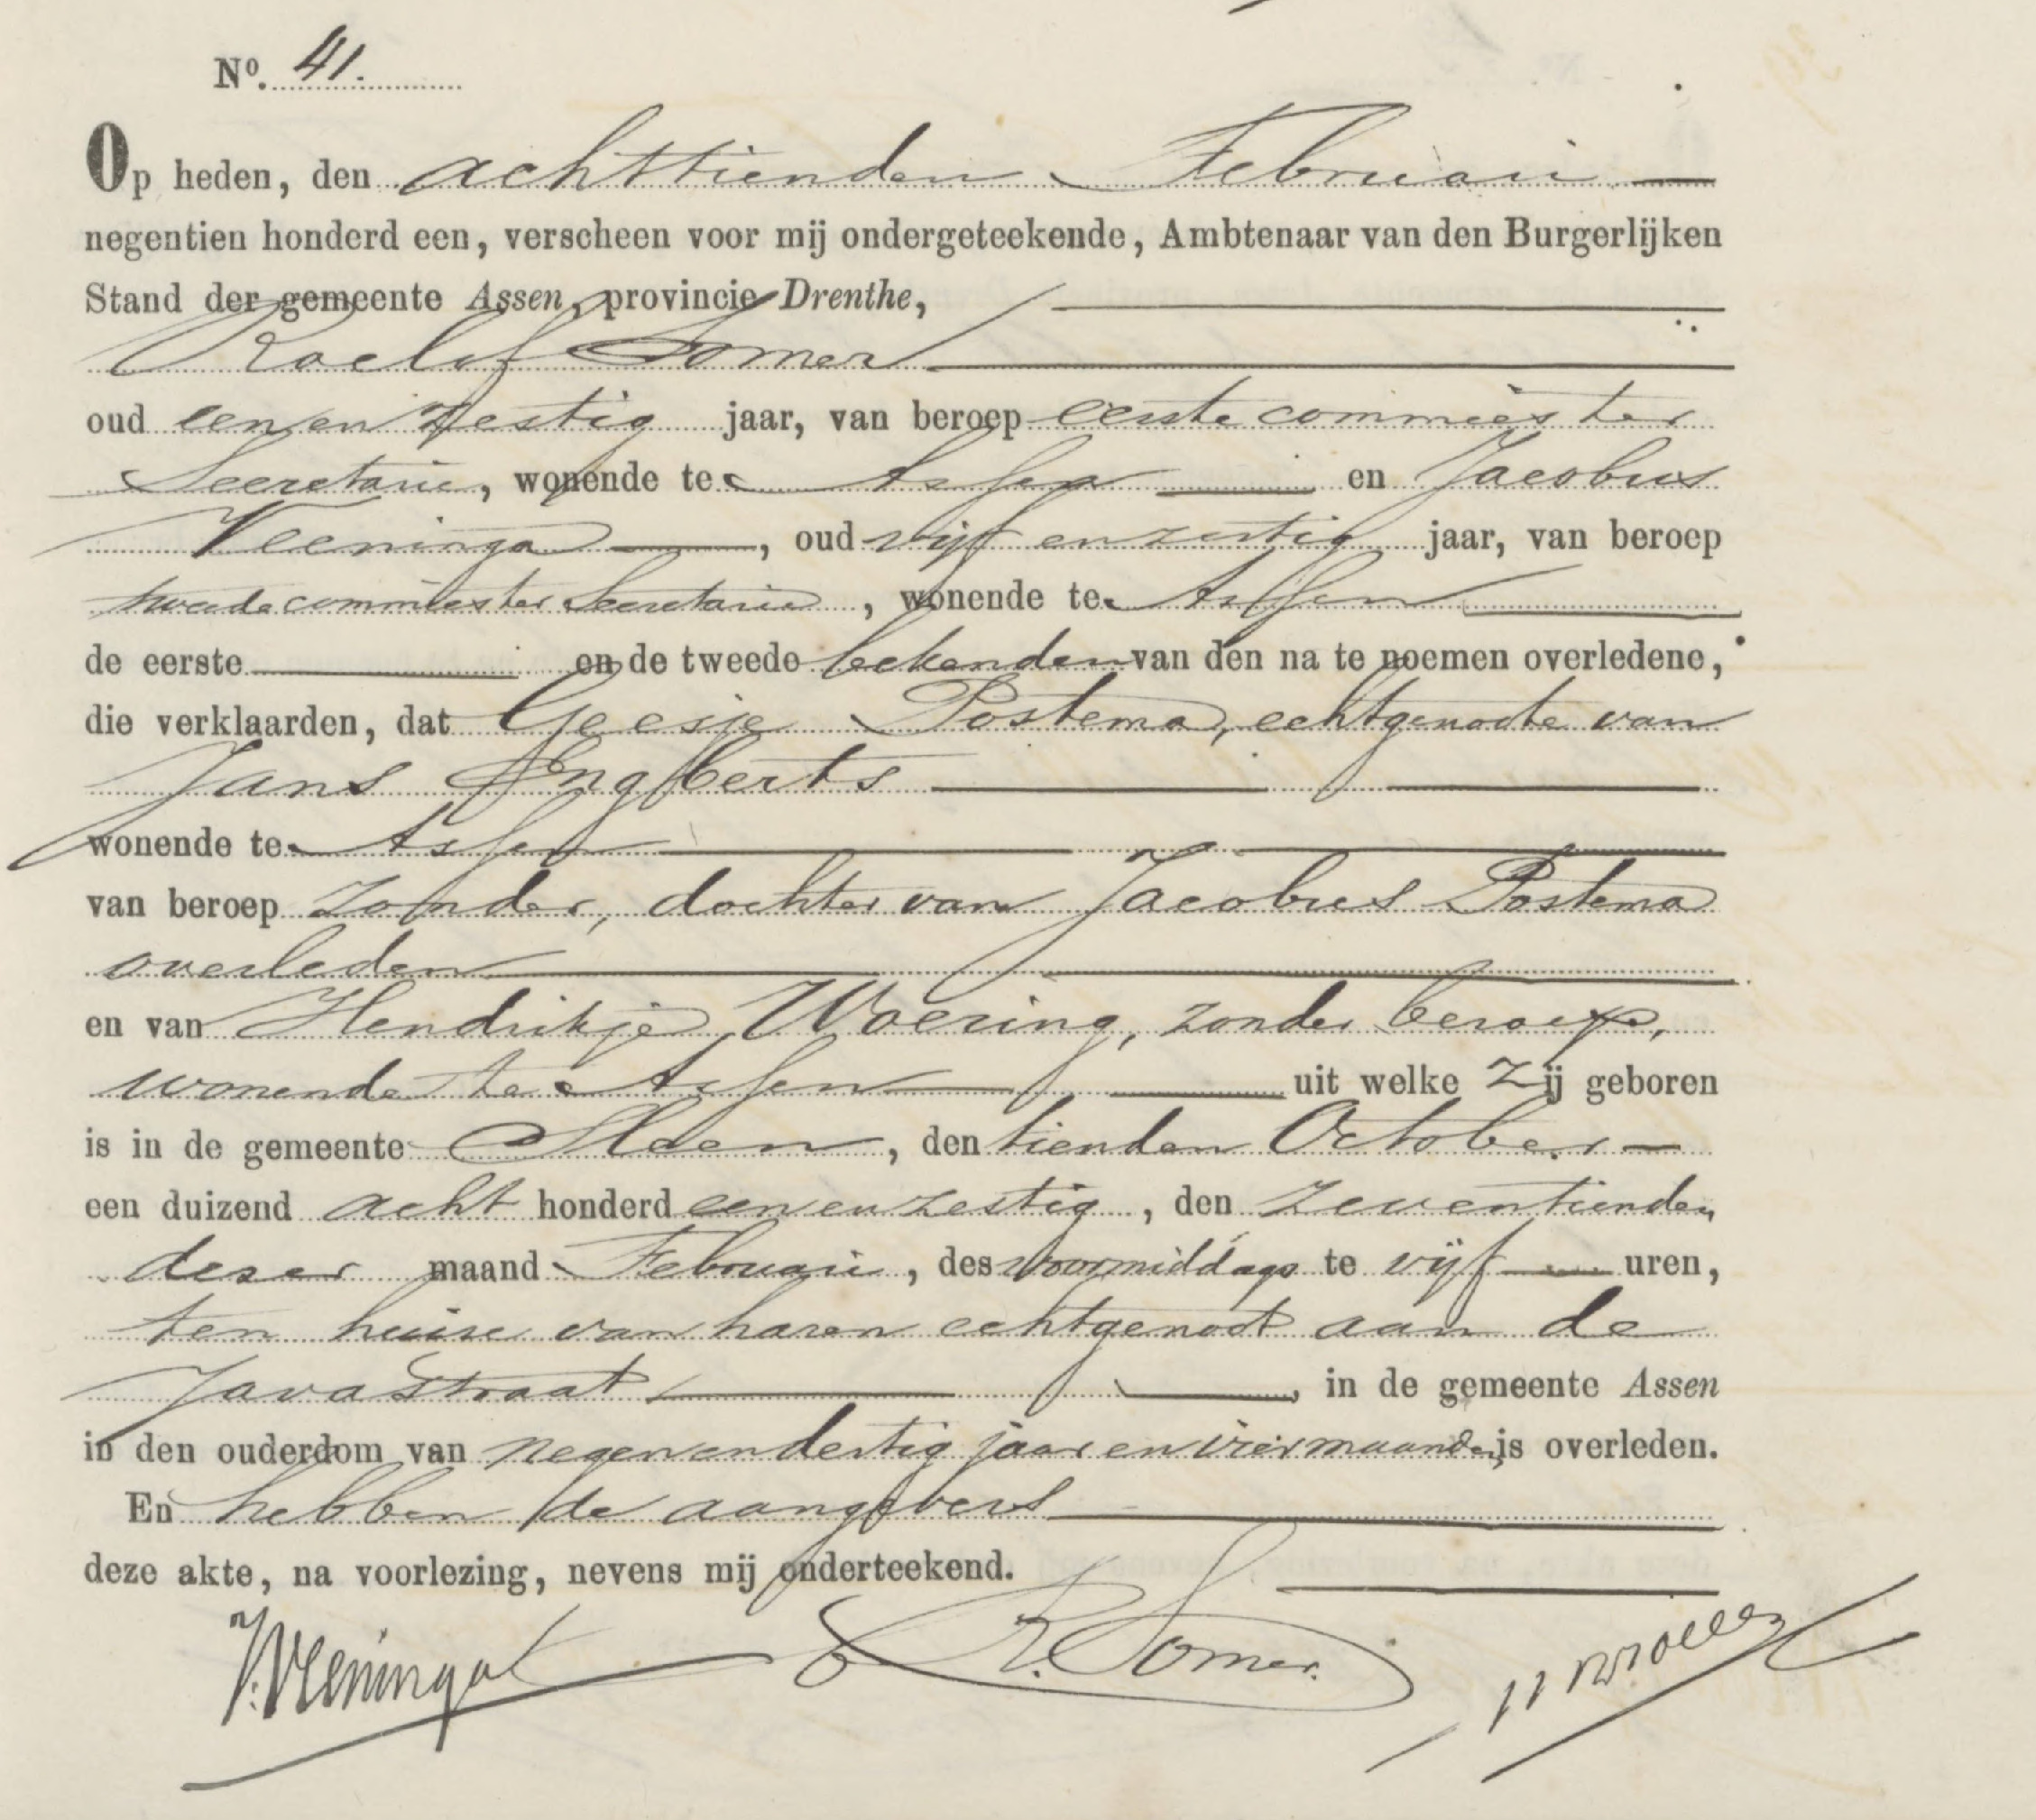 No. 41.
Op heden, den achttienden Februari
negentien honderd een, verscheen voor mij ondergeteekende, Ambtenaar van den Burgerlijken
Stand der gemeente Assen, provincie Drenthe,
Roelof Somer
oud een en zestig jaar, van beroep eerste commies ter
Secretarie, wonende te Assen en Jacobus
Veeninga, oud vijf en zestig jaar, van beroep
tweede commies ter Secretarie, wonende te Assen
de eerste en de tweede bekenden van den na te noemen overledene,
die verklaarden, dat Geesje Postema, echtgenoote van
Jans Engberts
wonende te Assen
van beroep zonder, dochter van Jacobus Postema
overleden
en van Hendrikje Woering, zonder beroep,
wonende te Assen uit welke Zij geboren
is in de gemeente Sleen, den tienden October
een duizend acht honderd een en zestig, den zeventienden
dezer maand Februari, des voormiddags te vijf uren,
ten huize van haren echtgenoot aan de
Javastraat, in de gemeente Assen
in den ouderdom van negen en dertig jaar en vier maanden is overleden.
En hebben de aangevers
deze akte, na voorlezing, nevens mij onderteekend.
J. Veeninga R. Somer.